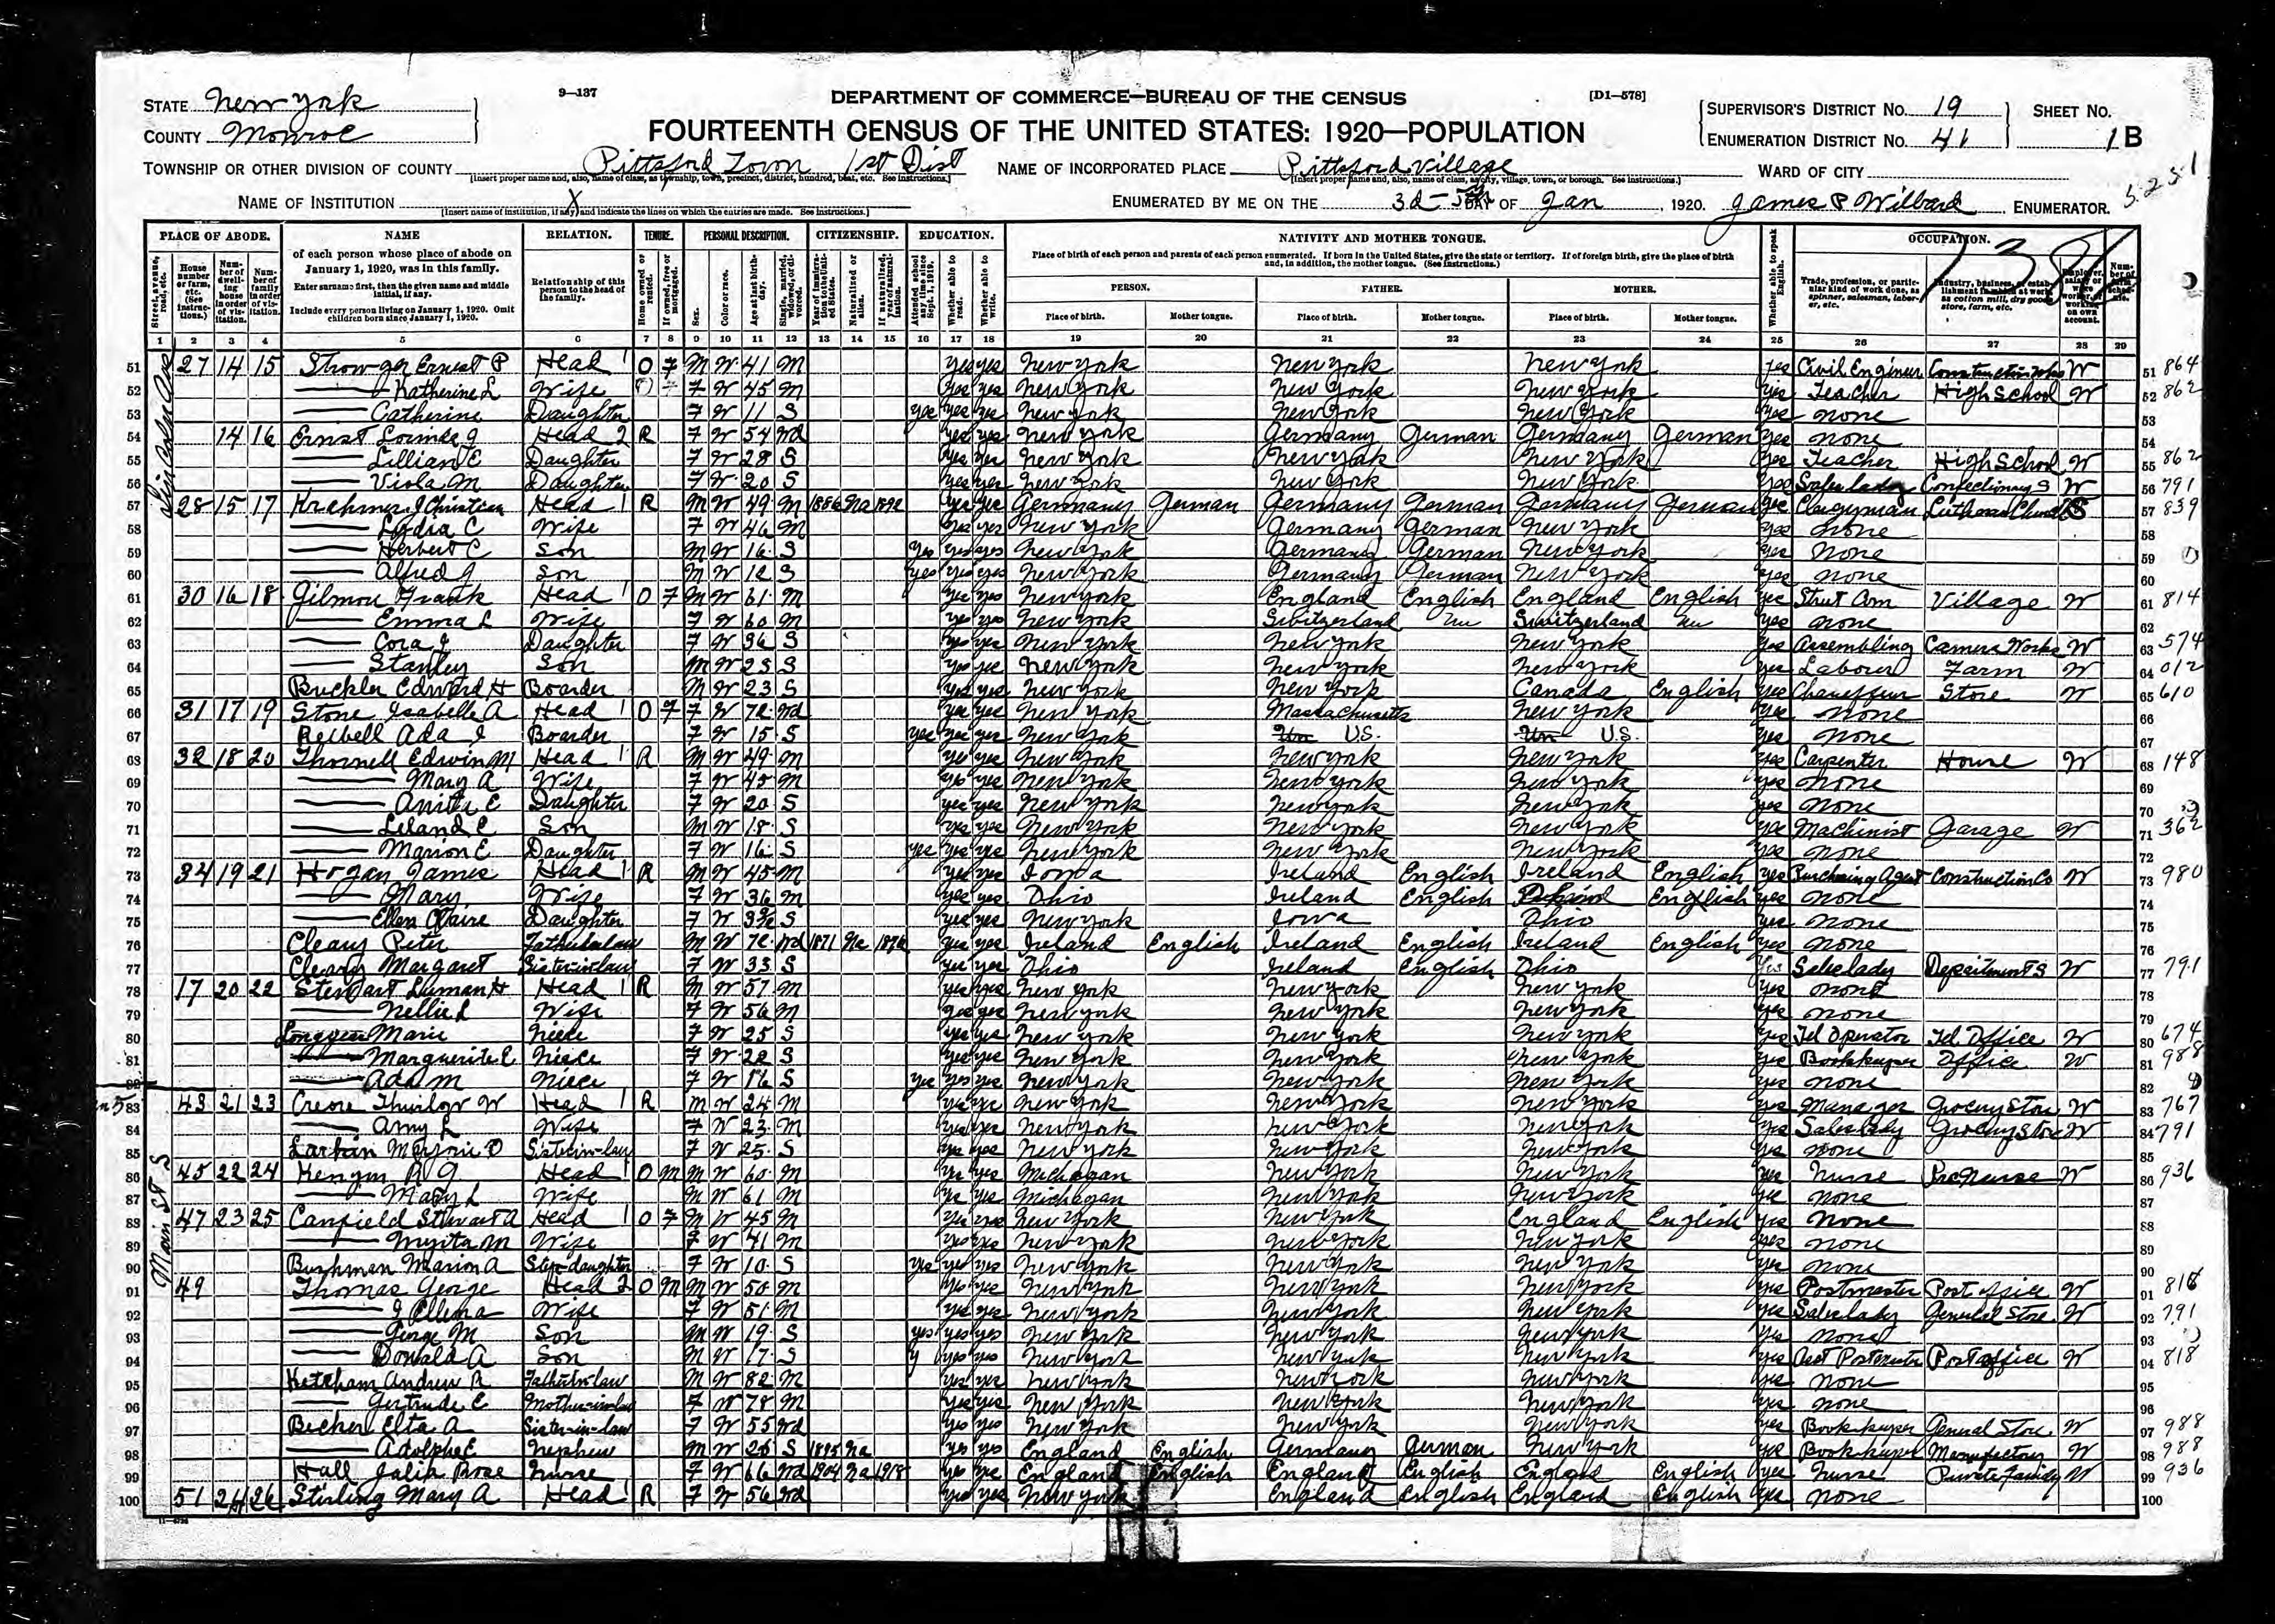 9—137
DEPARTMENT OF COMMERCE—BUREAU OF THE CENSUS
[D1—578]
STATE New York
COUNTY Monroe
FOURTEENTH CENSUS OF THE UNITED STATES: 1920—POPULATION
SUPERVISOR'S DISTRICT No. 19
ENUMERATION DISTRICT No. 41
SHEET No. 1 B
TOWNSHIP OR OTHER DIVISION OF COUNTY Pittsford Town 1st Dist
NAME OF INCORPORATED PLACE Pittsford Village
WARD OF CITY
5231
NAME OF INSTITUTION X
[Insert name of institution, if any, and indicate the lines on which the entries are made. See instructions.]
ENUMERATED BY ME ON THE 3d-5th DAY OF Jan, 1920. James P Willard, ENUMERATOR.
PLACE OF ABODE. NAME RELATION. TENURE. PERSONAL DESCRIPTION. CITIZENSHIP. EDUCATION. NATIVITY AND MOTHER TONGUE. OCCUPATION.
of each person whose place of abode on January 1, 1920, was in this family.
Enter surname first, then the given name and middle initial, if any.
Include every person living on January 1, 1920. Omit children born since January 1, 1920.
Relationship of this person to the head of the family.
Place of birth of each person and parents of each person enumerated. If born in the United States, give the state or territory. If of foreign birth, give the place of birth and, in addition, the mother tongue. (See instructions.)
PERSON. FATHER. MOTHER.
Place of birth. Mother tongue. Place of birth. Mother tongue. Place of birth. Mother tongue.
1 2 3 4 5 6 7 8 9 10 11 12 13 14 15 16 17 18 19 20 21 22 23 24 25 26 27 28 29
Lincoln Ave
51 27 14 15 Strowger Ernest P Head 1 O F M W 41 M yes yes New York New York New York yes Civil Engineer W 51 864
52 Katherine L Wife F W 45 M yes yes New York New York New York yes Teacher High School W 52 862
53 Catherine Daughter F W 11 S yes yes yes New York New York New York yes none 53
54 14 16 Ernst Head 2 R F W 54 Wd yes yes New York Germany German Germany German yes none 54
55 Lillian E Daughter F W 28 S yes yes New York New York New York yes Teacher High School W 55 862
56 Viola M Daughter F W 20 S yes yes New York New York New York yes Saleslady Confectionery S W 56 791
57 28 15 17 Krahmer J Christian Head 1 R M W 49 M 1886 Na 1892 yes yes Germany German Germany German Germany German yes Clergyman Lutheran Church 57 839
58 Lydia C Wife F W 46 M yes yes New York Germany German New York yes none 58
59 Herbert C Son M W 16 S yes yes yes New York Germany German New York yes none 59
60 Alfred J Son M W 12 S yes yes yes New York Germany German New York yes none 60
61 30 16 18 Gilmore Frank Head 1 O F M W 61 M yes yes New York England English England English yes Street Com Village W 61 814
62 Emma L Wife F W 60 M yes yes New York Switzerland Un Switzerland Un yes none 62
63 Cora J Daughter F W 36 S yes yes New York New York New York yes Assembling Camera Works W 63 574
64 Stanley Son M W 23 S yes yes New York New York New York yes Laborer Farm W 64 012
65 Buckler Edward H Boarder M W 23 S yes yes New York New York Canada English yes Chauffeur Store W 65 610
66 31 17 19 Stone Isabelle A Head 1 O F F W 72 Wd yes yes New York Massachusetts New York yes none 66
67 Ada Boarder F W 15 S yes yes yes New York Un U.S. Un U.S. yes none 67
68 32 18 20 Thornell Edwin M Head 1 R M W 49 M yes yes New York New York New York yes Carpenter House W 68 148
69 Mary A Wife F W 45 M yes yes New York New York New York yes none 69
70 Anitta E Daughter F W 20 S yes yes New York New York New York yes none 70
71 Leland C Son M W 18 S yes yes New York New York New York yes Machinist Garage W 71 362
72 Marion E Daughter F W 16 S yes yes yes New York New York New York yes none 72
73 34 19 21 Hogan James Head 1 R M W 45 M yes yes Iowa Ireland English Ireland English yes Purchasing Agent Construction Co W 73 980
74 Mary Wife F W 36 M yes yes Ohio Ireland English English yes none 74
75 Ellen Claire Daughter F W S yes yes New York Iowa Ohio yes none 75
76 Cleary Peter Father in law M W 72 Wd 1871 Na 1876 yes yes Ireland English Ireland English Ireland English yes none 76
77 Cleary Margaret Sister-in-law F W 33 S yes yes Ohio Ireland English Ohio yes Saleslady Department S W 77 791
78 17 20 22 Stewart Luman H Head 1 R M W 57 M yes yes New York New York New York yes none 78
79 Nellie L Wife F W 56 M yes yes New York New York New York yes none 79
80 Marie Niece F W 25 S yes yes New York New York New York yes Tel Operator Tel Office W 80 674
81 Marguerite E Niece F W 22 S yes yes New York New York New York yes Bookkeeper Office W 81 988
82 Ada M Niece F W 16 S yes yes yes New York New York New York yes none 82
Main St S
83 43 21 23 Head 1 R M W 24 M yes yes New York New York New York yes Manager Grocery Store W 83 767
84 Amy L Wife F W 23 M yes yes New York New York New York yes Saleslady Grocery Store W 84 791
85 Larkin Marjorie D Sister in-law F W 25 S yes yes New York New York New York yes none 85
86 45 22 24 Kenyon A G Head 1 O M M W 60 M yes yes Michigan New York New York yes Nurse W 86 936
87 Mary L Wife M W 61 M yes yes Michigan New York New York yes none 87
88 47 23 25 Canfield Stewart A Head 1 O F M W 45 M yes yes New York New York England English yes none 88
89 Myrta M Wife F W 41 M yes yes New York New York New York yes none 89
90 Bushman Marion A Step-daughter F W 10 S yes yes yes New York New York New York yes none 90
91 49 Thomas George Head 2 O M M W 50 M yes yes New York New York New York yes Postmaster Post office W 91 818
92 J Ellena Wife F W 51 M yes yes New York New York New York yes Saleslady General Store W 92 791
93 George M Son M W 19 S yes yes yes New York New York New York yes none 93
94 Donald A Son M W 17 S y yes yes New York New York New York yes Asst Postmaster Post office W 94 818
95 Ketcham Andrew R Father in law M W 82 M yes yes New York New York New York yes none 95
96 Gertrude E Mother-in-law F W 78 M yes yes New York New York New York yes none 96
97 Becher Elta A Sister-in-law F W 55 Wd yes yes New York New York New York yes Bookkeeper General Store W 97 988
98 Adolph E Nephew M W 26 S 1895 Na yes yes England English Germany German New York yes Bookkeeper Manufactory W 98 988
99 Hall Julia Rose Nurse F W 66 Wd 1904 Na 1918 yes yes England English England English England English yes Nurse Private Family W 99 936
100 51 24 26 Stirling Mary A Head 1 R F W 56 Wd yes yes New York England English England English yes none 100